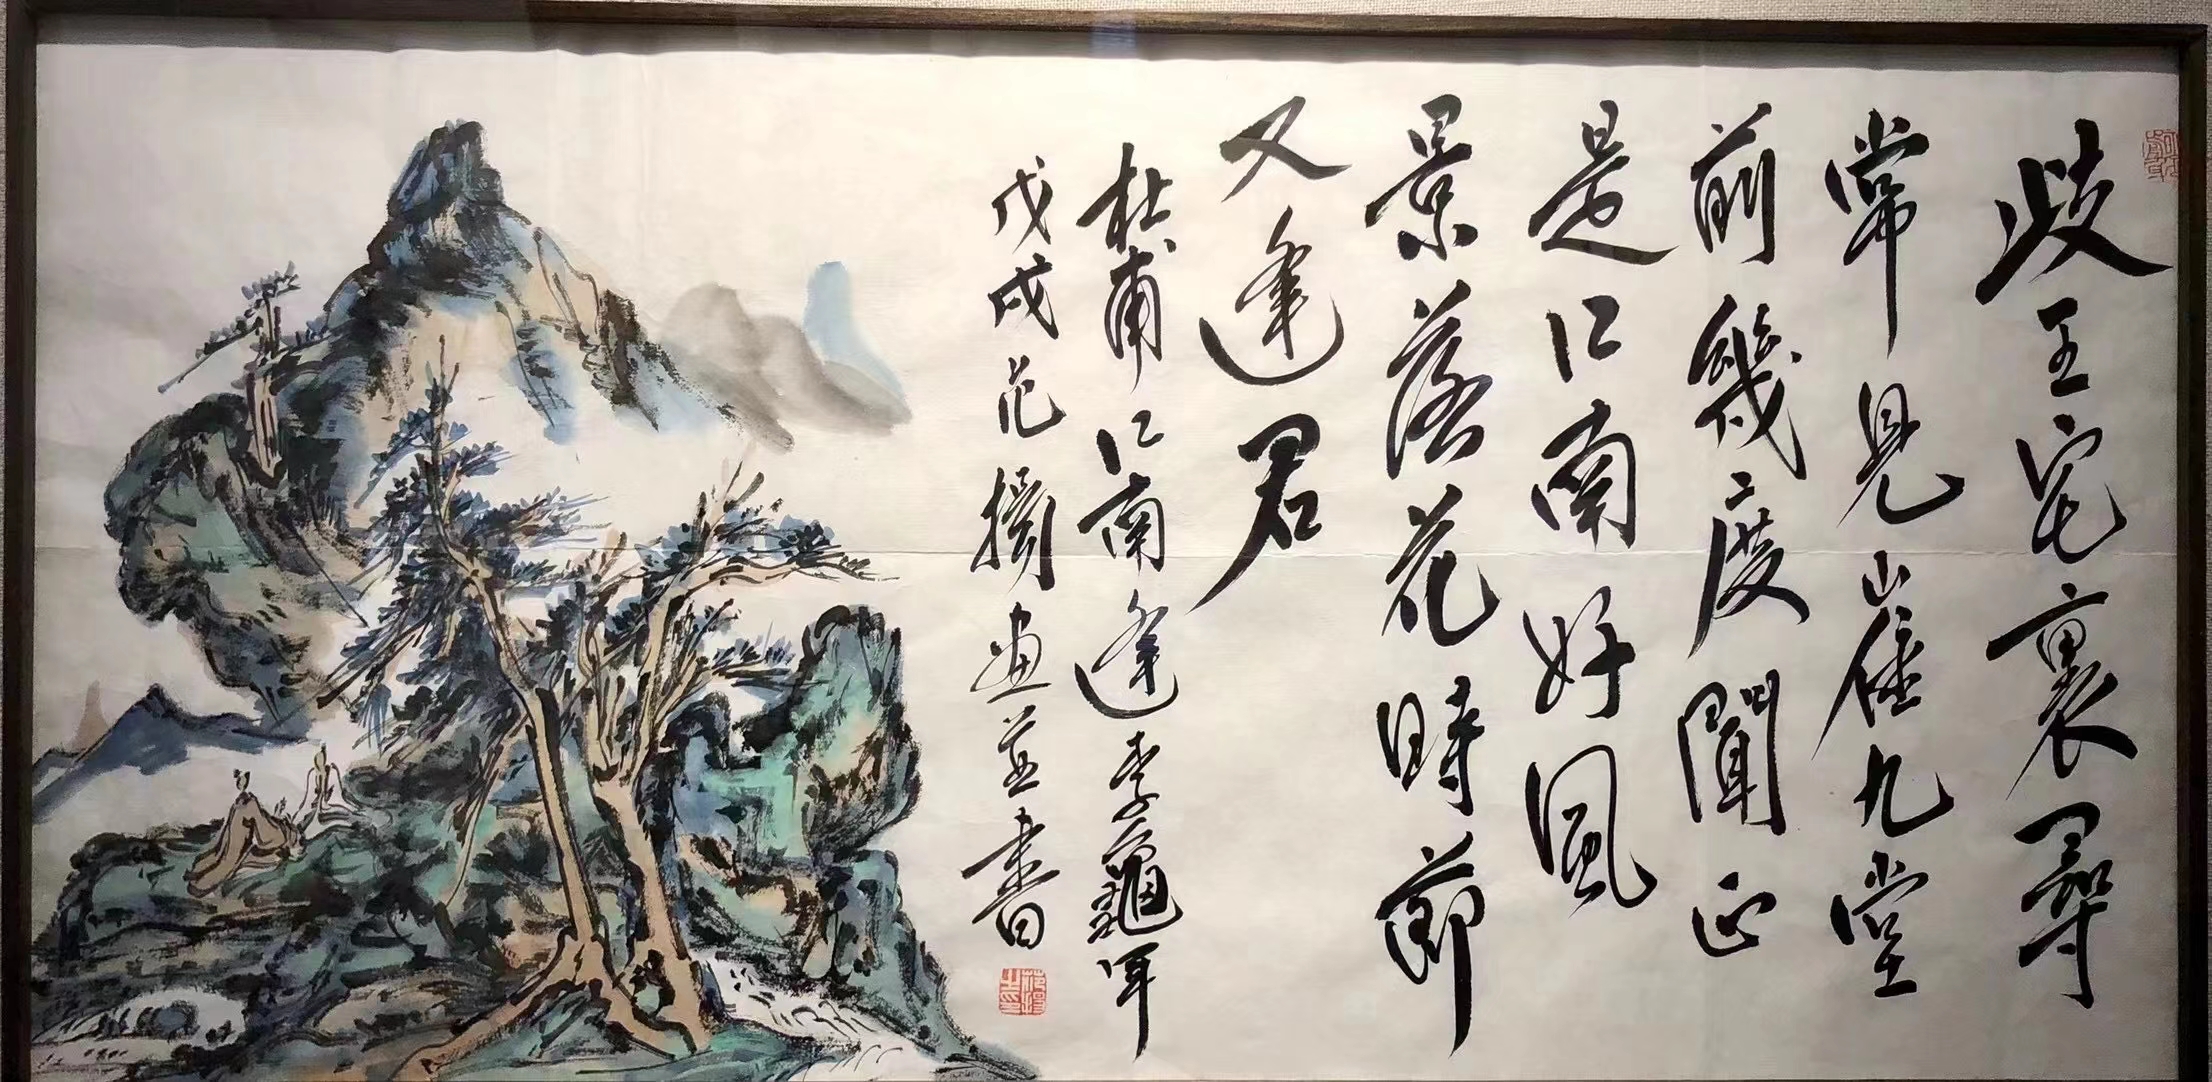 岐王宅裏尋
常見崔九堂
前幾度聞正
是江南好風
景落花時節
又逢君
杜甫江南逢李龜年
戊戌范畫並書